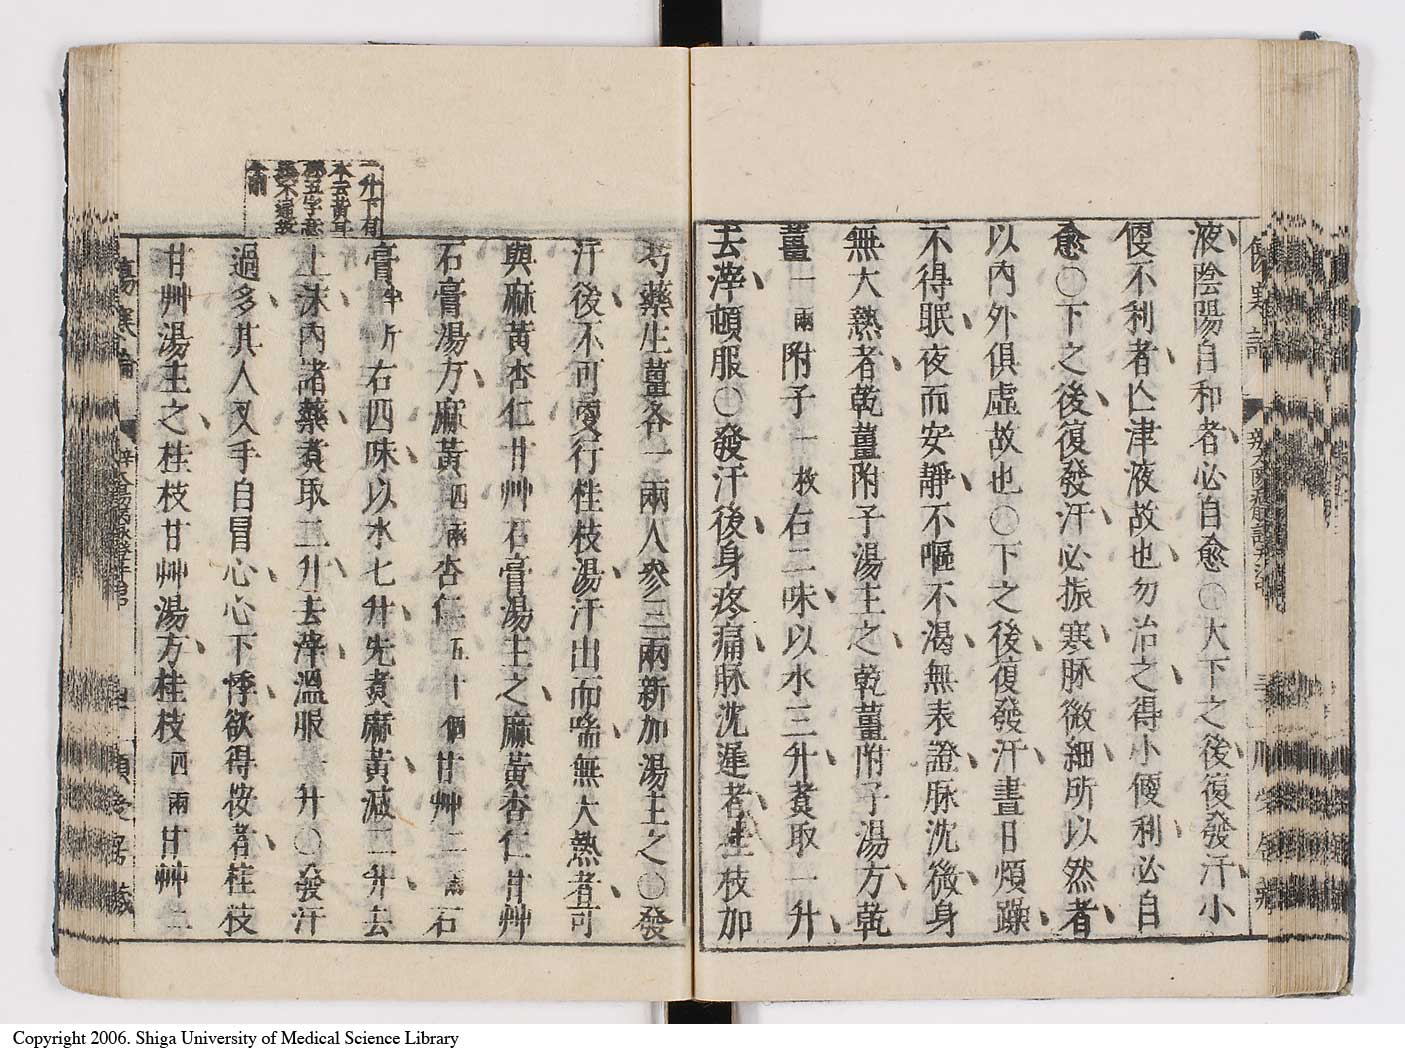 液陰陽自和者必自愈〇大下之後復發汗小
傻不利者亾津液故也勿治之得小傻利必自
愈〇下之後復發汗必振寒脉微細所以然者
以內外俱虛故也〇下之後復發汗晝日煩躁
不得眠夜而安靜不嘔不渴無表證脉沈微身
無大熱者乾薑附子湯主之乾薑附子湯方乾
薑一兩附子一枚右二味以水三升煮取一升
去滓頓服〇發汗後身疼痛脉沈遲者桂枝加
一升下有
本云黃耳
柸五字
今削
芍藥生薑各一兩人參三兩新加湯主之〇發
汗後不可更行桂枝湯汗出而喘無大熱者可
與麻黃杏仁甘艸石膏湯主之麻黃杏仁甘艸
石膏湯方麻黃四兩杏仁五十個甘艸二兩石
膏半斤右四味以水七升先煮麻黃減二升去
上沫內諸藥煮取二升去滓溫服一升〇發汗
過多其人叉手自冒心心下悸欲得按者桂枝
甘艸湯主之桂枝甘艸湯方桂枝四兩甘艸二
傷寒論
Copyright 2006. Shiga University of Medical Science Library